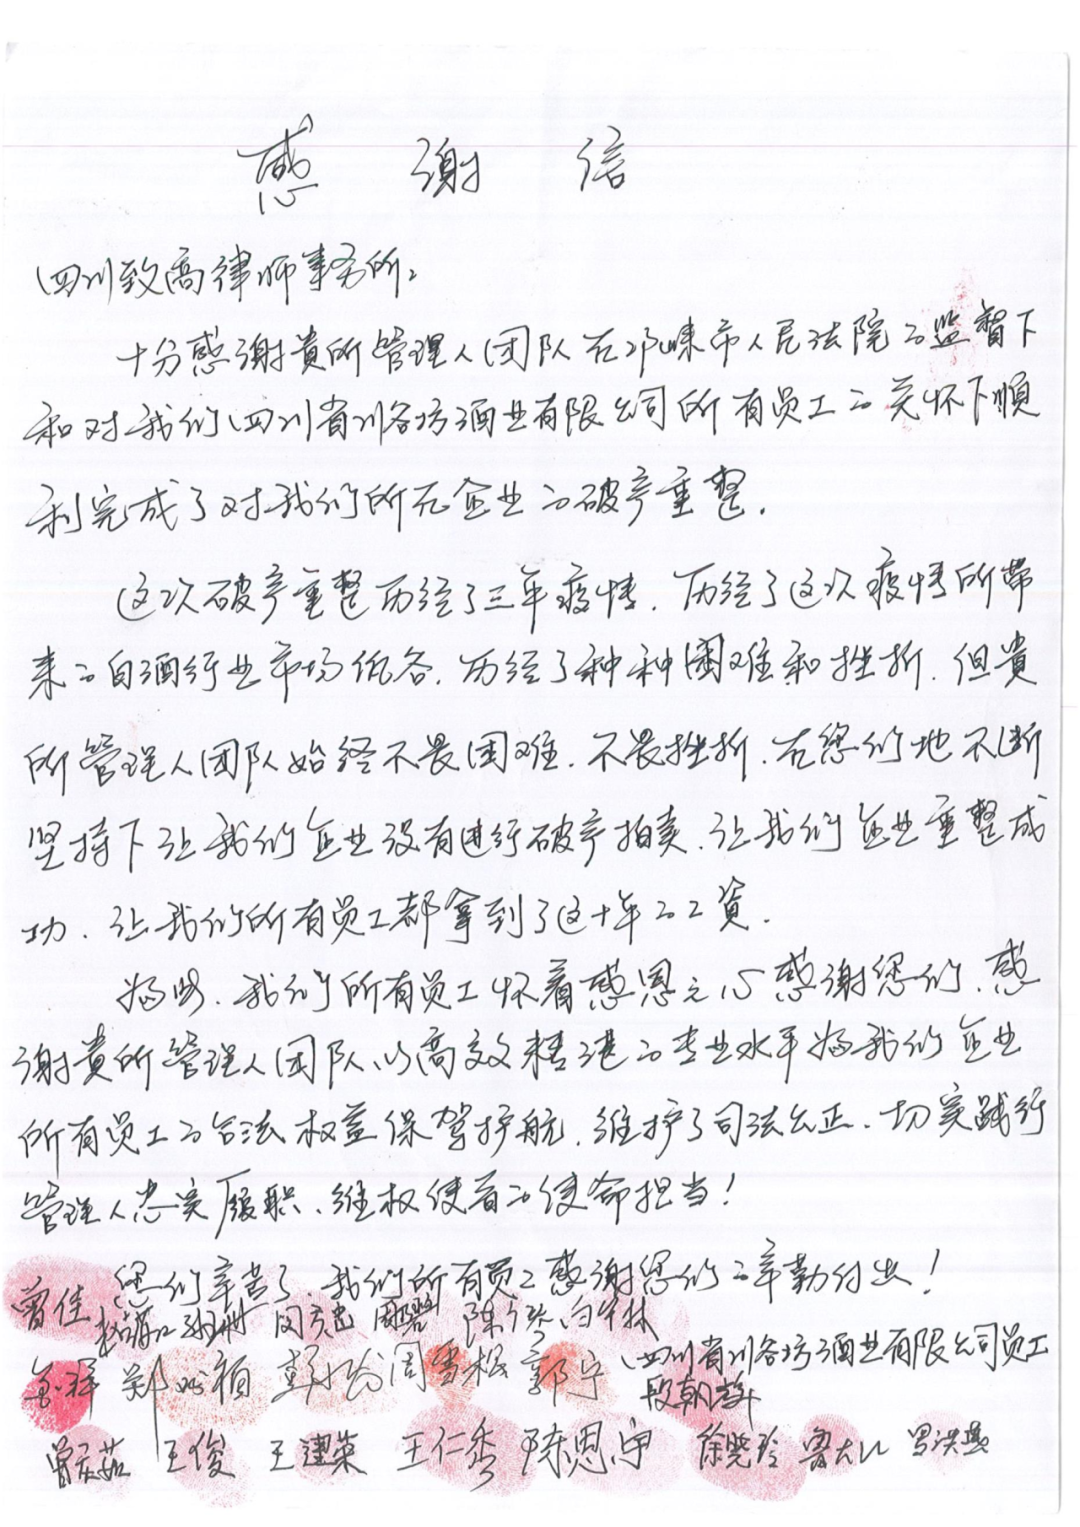 感谢信
四川致高律师事务所：
十分感谢貴所管理人团队在邛崃市人民法院的监督下
和对我们四川省川谷坊酒业有限公司所有员工的关怀下顺
利完成了对我们所在企业的破产重整.
这次破产重整历经了三年疫情. 历经了这次疫情所带
来的白酒行业市场低谷. 历经了种种困难和挫折. 但貴
所管理人团队始终不畏困难. 不畏挫折. 在您们地不断
坚持下让我们企业没有进行破产拍卖. 让我们企业重整成
功. 让我们所有员工都拿到了这十年的工资.
为此. 我们所有员工怀着感恩之心感谢您们. 感
谢貴所管理人团队以高效精湛的专业水平为我们企业
所有员工的合法权益保驾护航. 维护了司法公正. 切实践行
管理人忠实履职、维权使者的使命担当!
您们辛苦了. 我们所有员工感谢您们的辛勤付出!
曾佳
四川省川谷坊酒业有限公司员工
郑 周雪松 郭宁
王俊 王建荣 王仁秀 陈思宇 徐尧玲